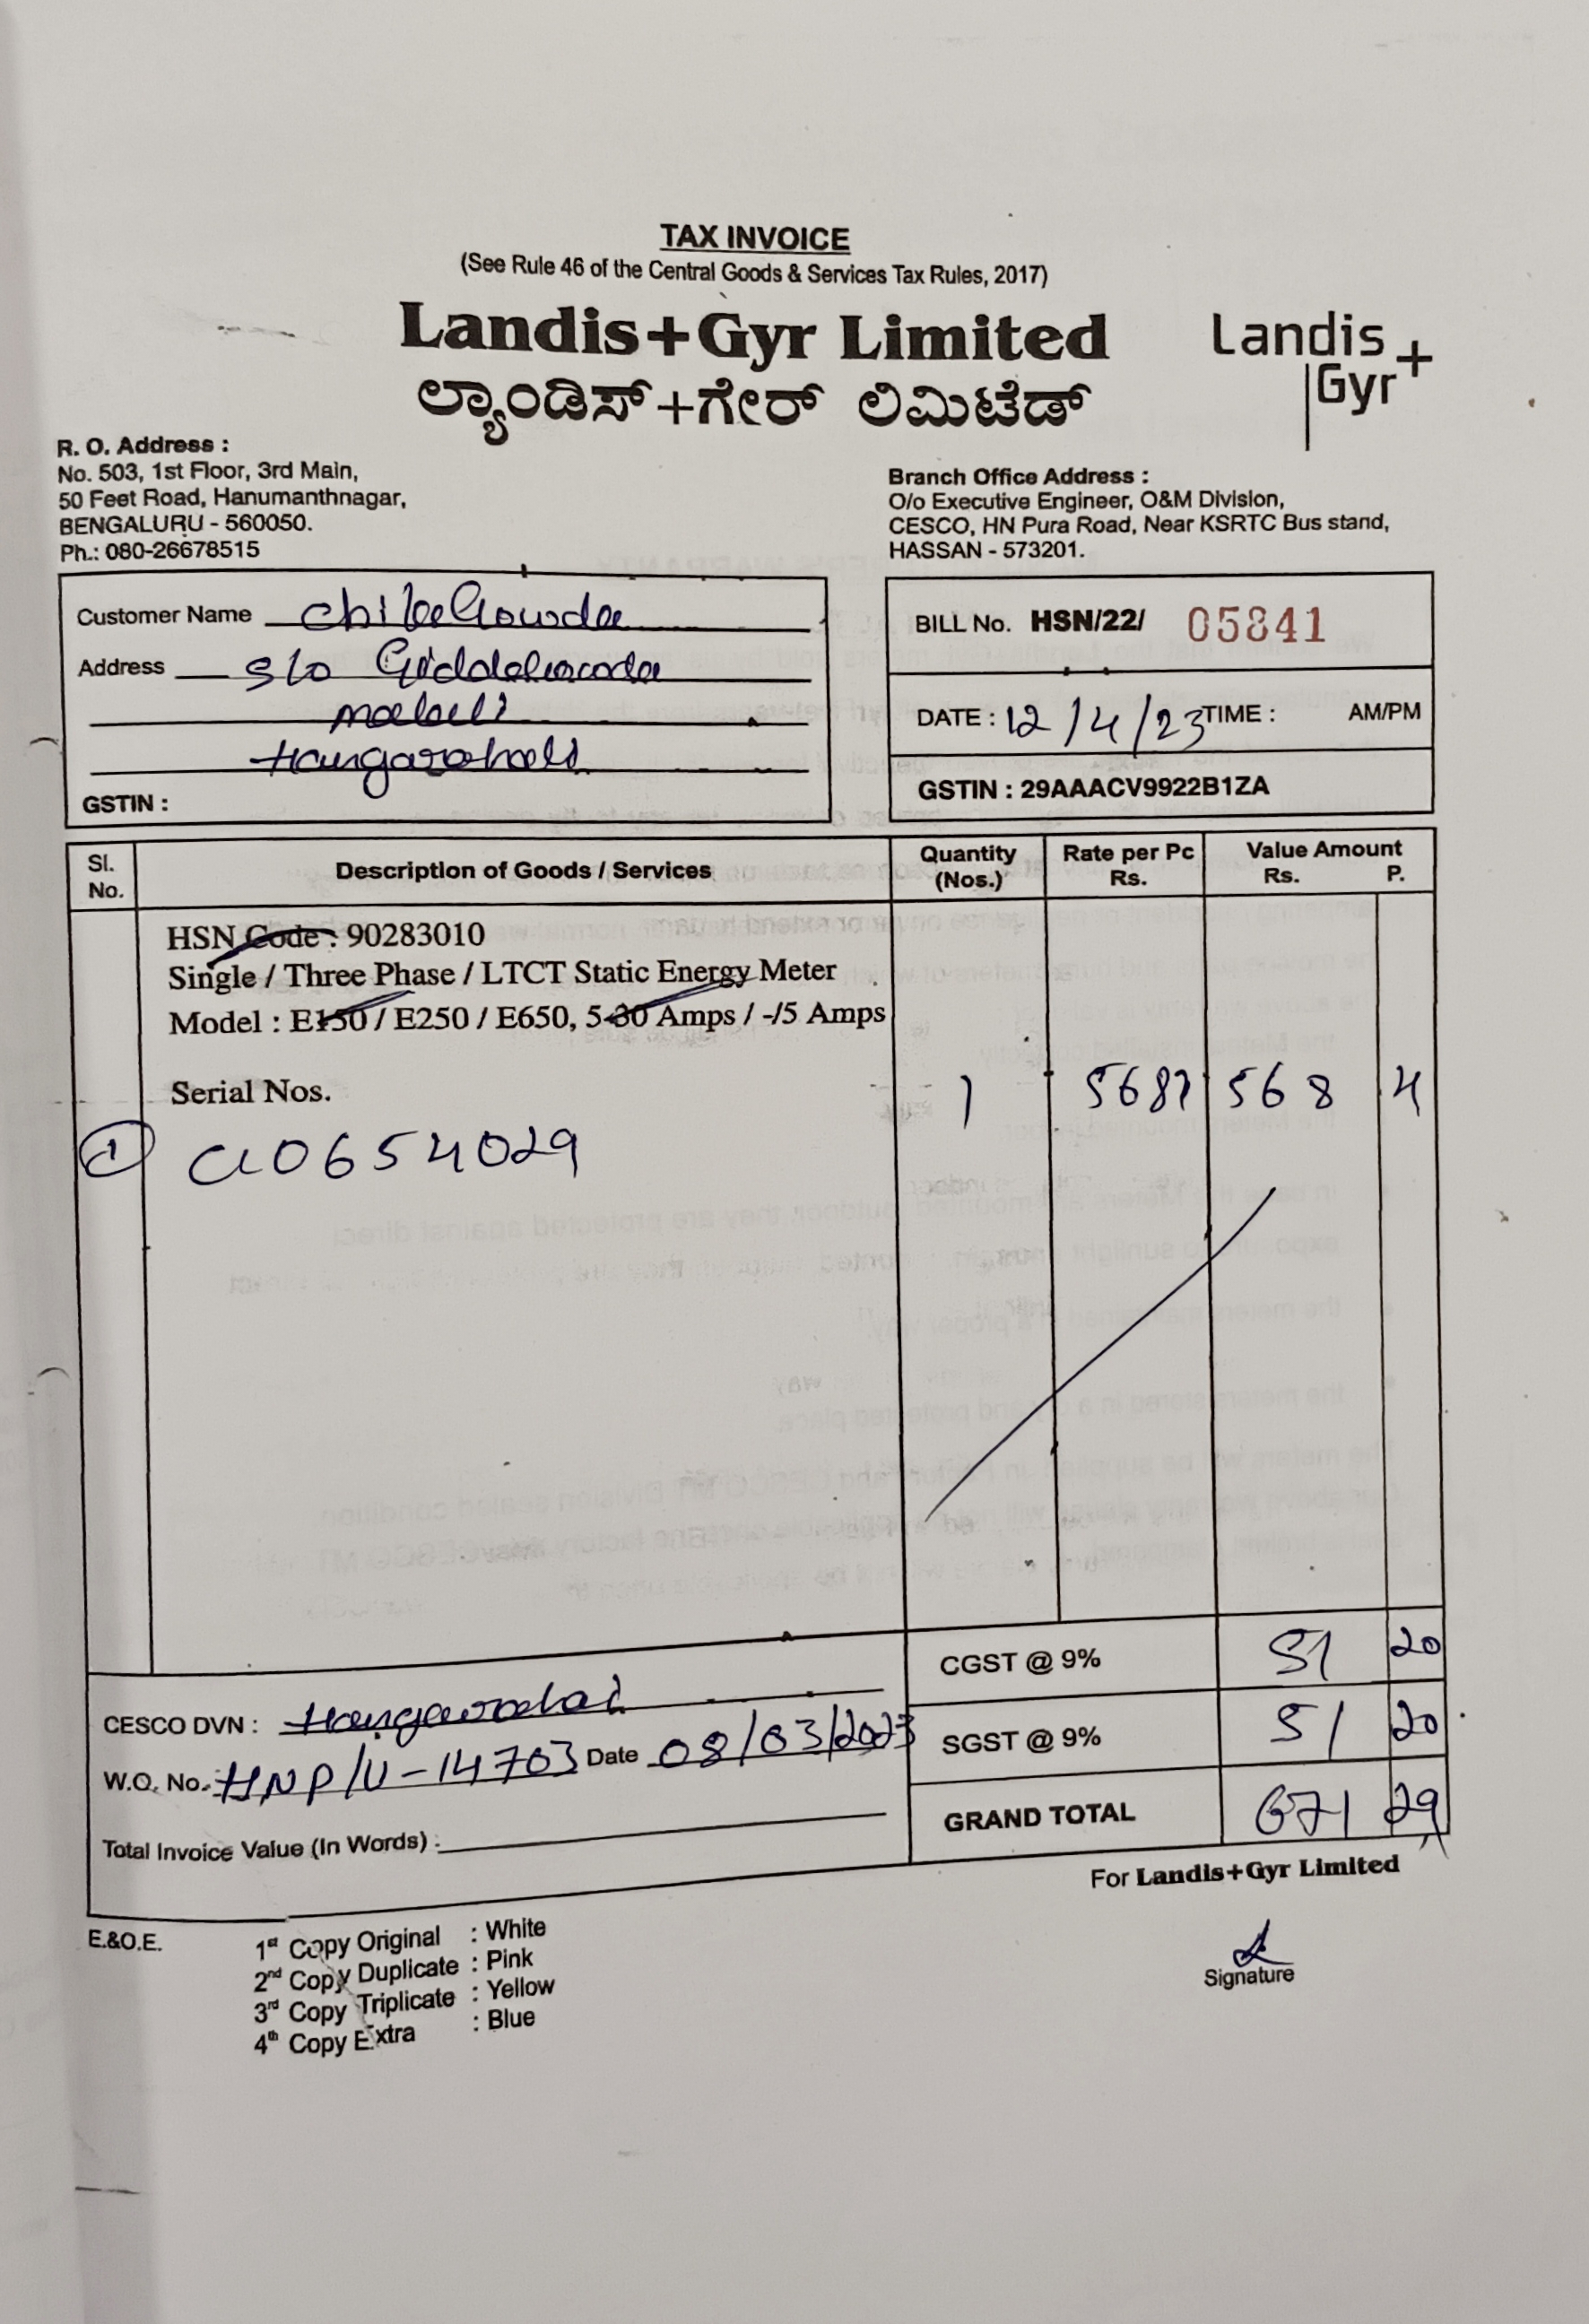 TAX INVOICE
(See Rule 46 of the Central Goods & Services Tax Rules, 2017)
Landis+Gyr Limited
ಲ್ಯಾಂಡಿಸ್+ಗೇರ್ ಲಿಮಿಟೆಡ್
Landis
Gyr+
R. O. Address :
No. 503, 1st Floor, 3rd Main,
50 Feet Road, Hanumanthnagar,
BENGALURU - 560050.
Ph.: 080-26678515
Branch Office Address :
O/o Executive Engineer, O&M Division,
CESCO, HN Pura Road, Near KSRTC Bus stand,
HASSAN - 573201.
Customer Name
Address S/o
GSTIN :
BILL No. HSN/22/ 05841
DATE : 12/4/23 TIME : AM/PM
GSTIN : 29AAACV9922B1ZA
Sl. No. Description of Goods / Services Quantity (Nos.) Rate per Pc Rs. Value Amount Rs. P.
HSN Code : 90283010
Single / Three Phase / LTCT Static Energy Meter
Model : E150 / E250 / E650, 5-30 Amps / -/5 Amps
Serial Nos. 1 568 4
1 0654029
CGST @ 9% 51 20
SGST @ 9% 51 20
GRAND TOTAL 671 29
CESCO DVN :
W.O. No. HNP/U-14703 Date 08/03/2023
Total Invoice Value (In Words) :
For Landis+Gyr Limited
Signature
E.&O.E.
1st Copy Original : White
2nd Copy Duplicate : Pink
3rd Copy Triplicate : Yellow
4th Copy Extra : Blue